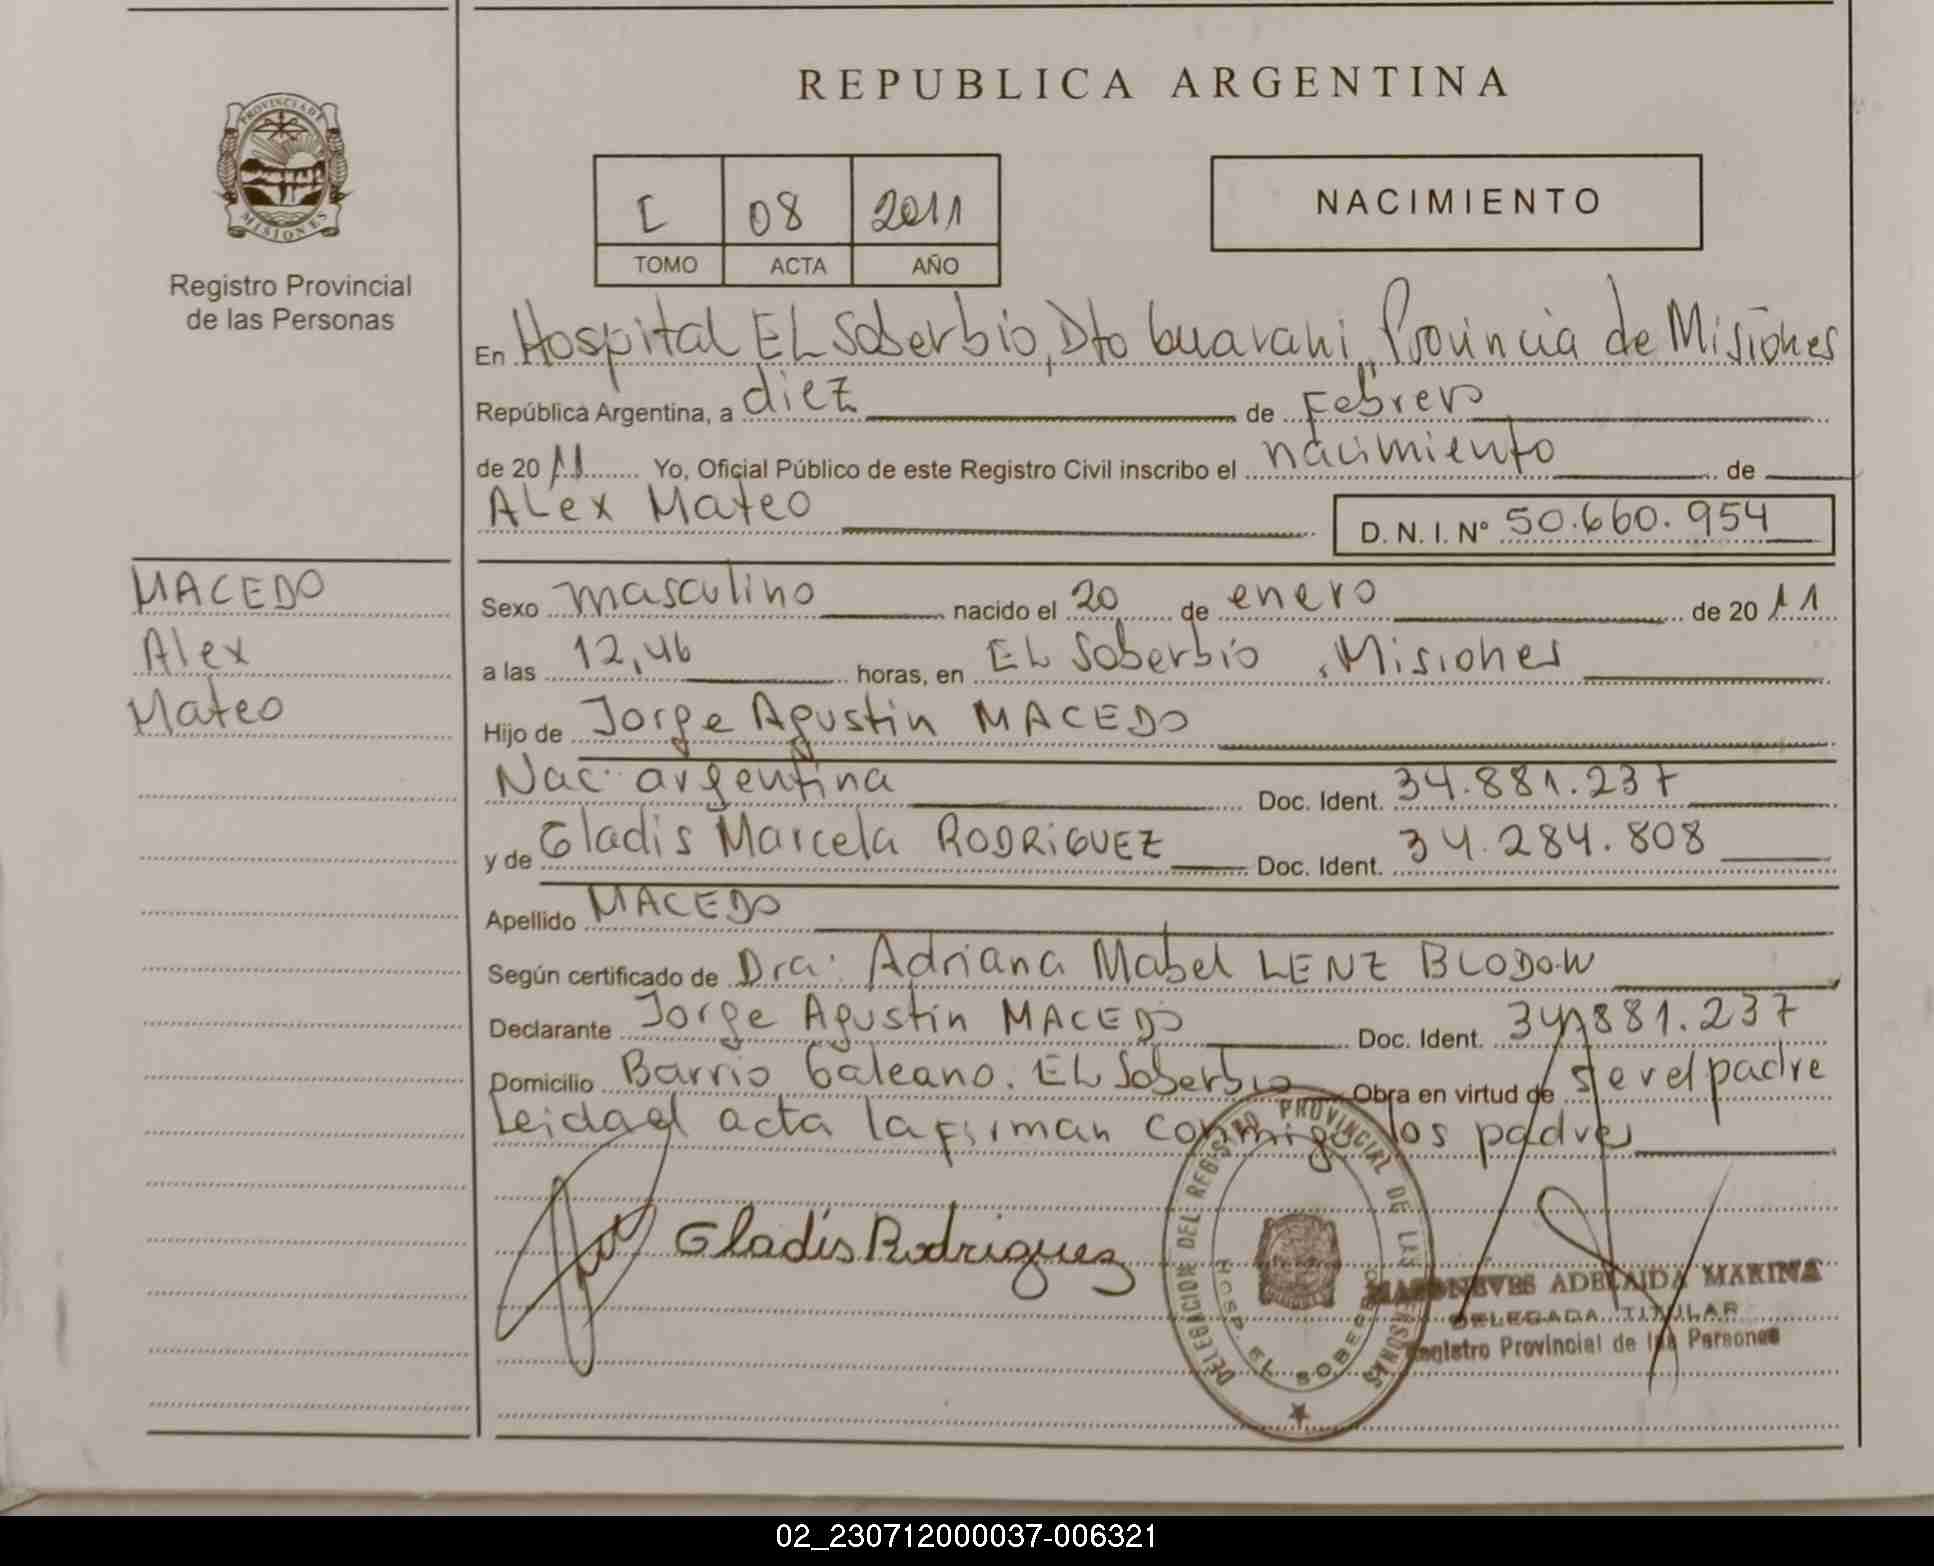 REPUBLICA ARGENTINA
PROVINCIA DE
MISIONES
Registro Provincial
de las Personas
I 08 2011
TOMO ACTA AÑO
NACIMIENTO
En Hospital EL Soberbio, Dto Guarani, Provincia de Misiones
República Argentina, a diez de Febrero
de 2011 Yo, Oficial Público de este Registro Civil inscribo el nacimiento de
ALex Mateo
D. N. I. Nº 50.660.954
MACEDO
Alex
Mateo
Sexo masculino nacido el 20 de enero de 2011
a las 12,46 horas, en EL Soberbio, Misiones
Hijo de Jorge Agustin MACEDO
Nac. argentina Doc. Ident. 34.881.237
y de Gladis Marcela RODRiGUEZ Doc. Ident. 34.284.808
Apellido MACEDO
Según certificado de Dra. Adriana Mabel LENZ BLODOW
Declarante Jorge Agustin MACEDO Doc. Ident. 34.881.237
Domicilio Barrio Galeano. EL Soberbio Obra en virtud de ser el padre
Leida el acta la firman conmigo los padres
Gladis Rodriguez
DELEGACION DEL REGISTRO PROVINCIAL DE LAS PERSONAS
HOSP. EL SOBERBIO
ADELAIDA MARINA
DELEGADA TITULAR
Registro Provincial de las Personas
02_230712000037-006321